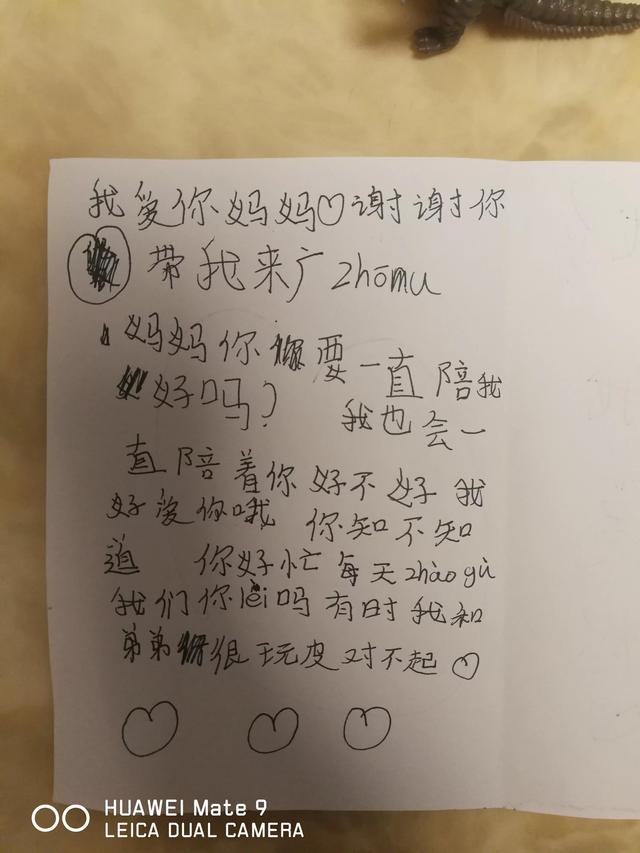 我爱你妈妈♡谢谢你
带我来广zhōmu
妈妈你要一直陪我
好吗？ 我也会一
直陪着你好不好我
好爱你哦 你知不知
道 你好忙每天zhàogù
我们你lèi吗有时我和
弟弟很玩皮对不起♡
♡ ♡ ♡
HUAWEI Mate 9
LEICA DUAL CAMERA